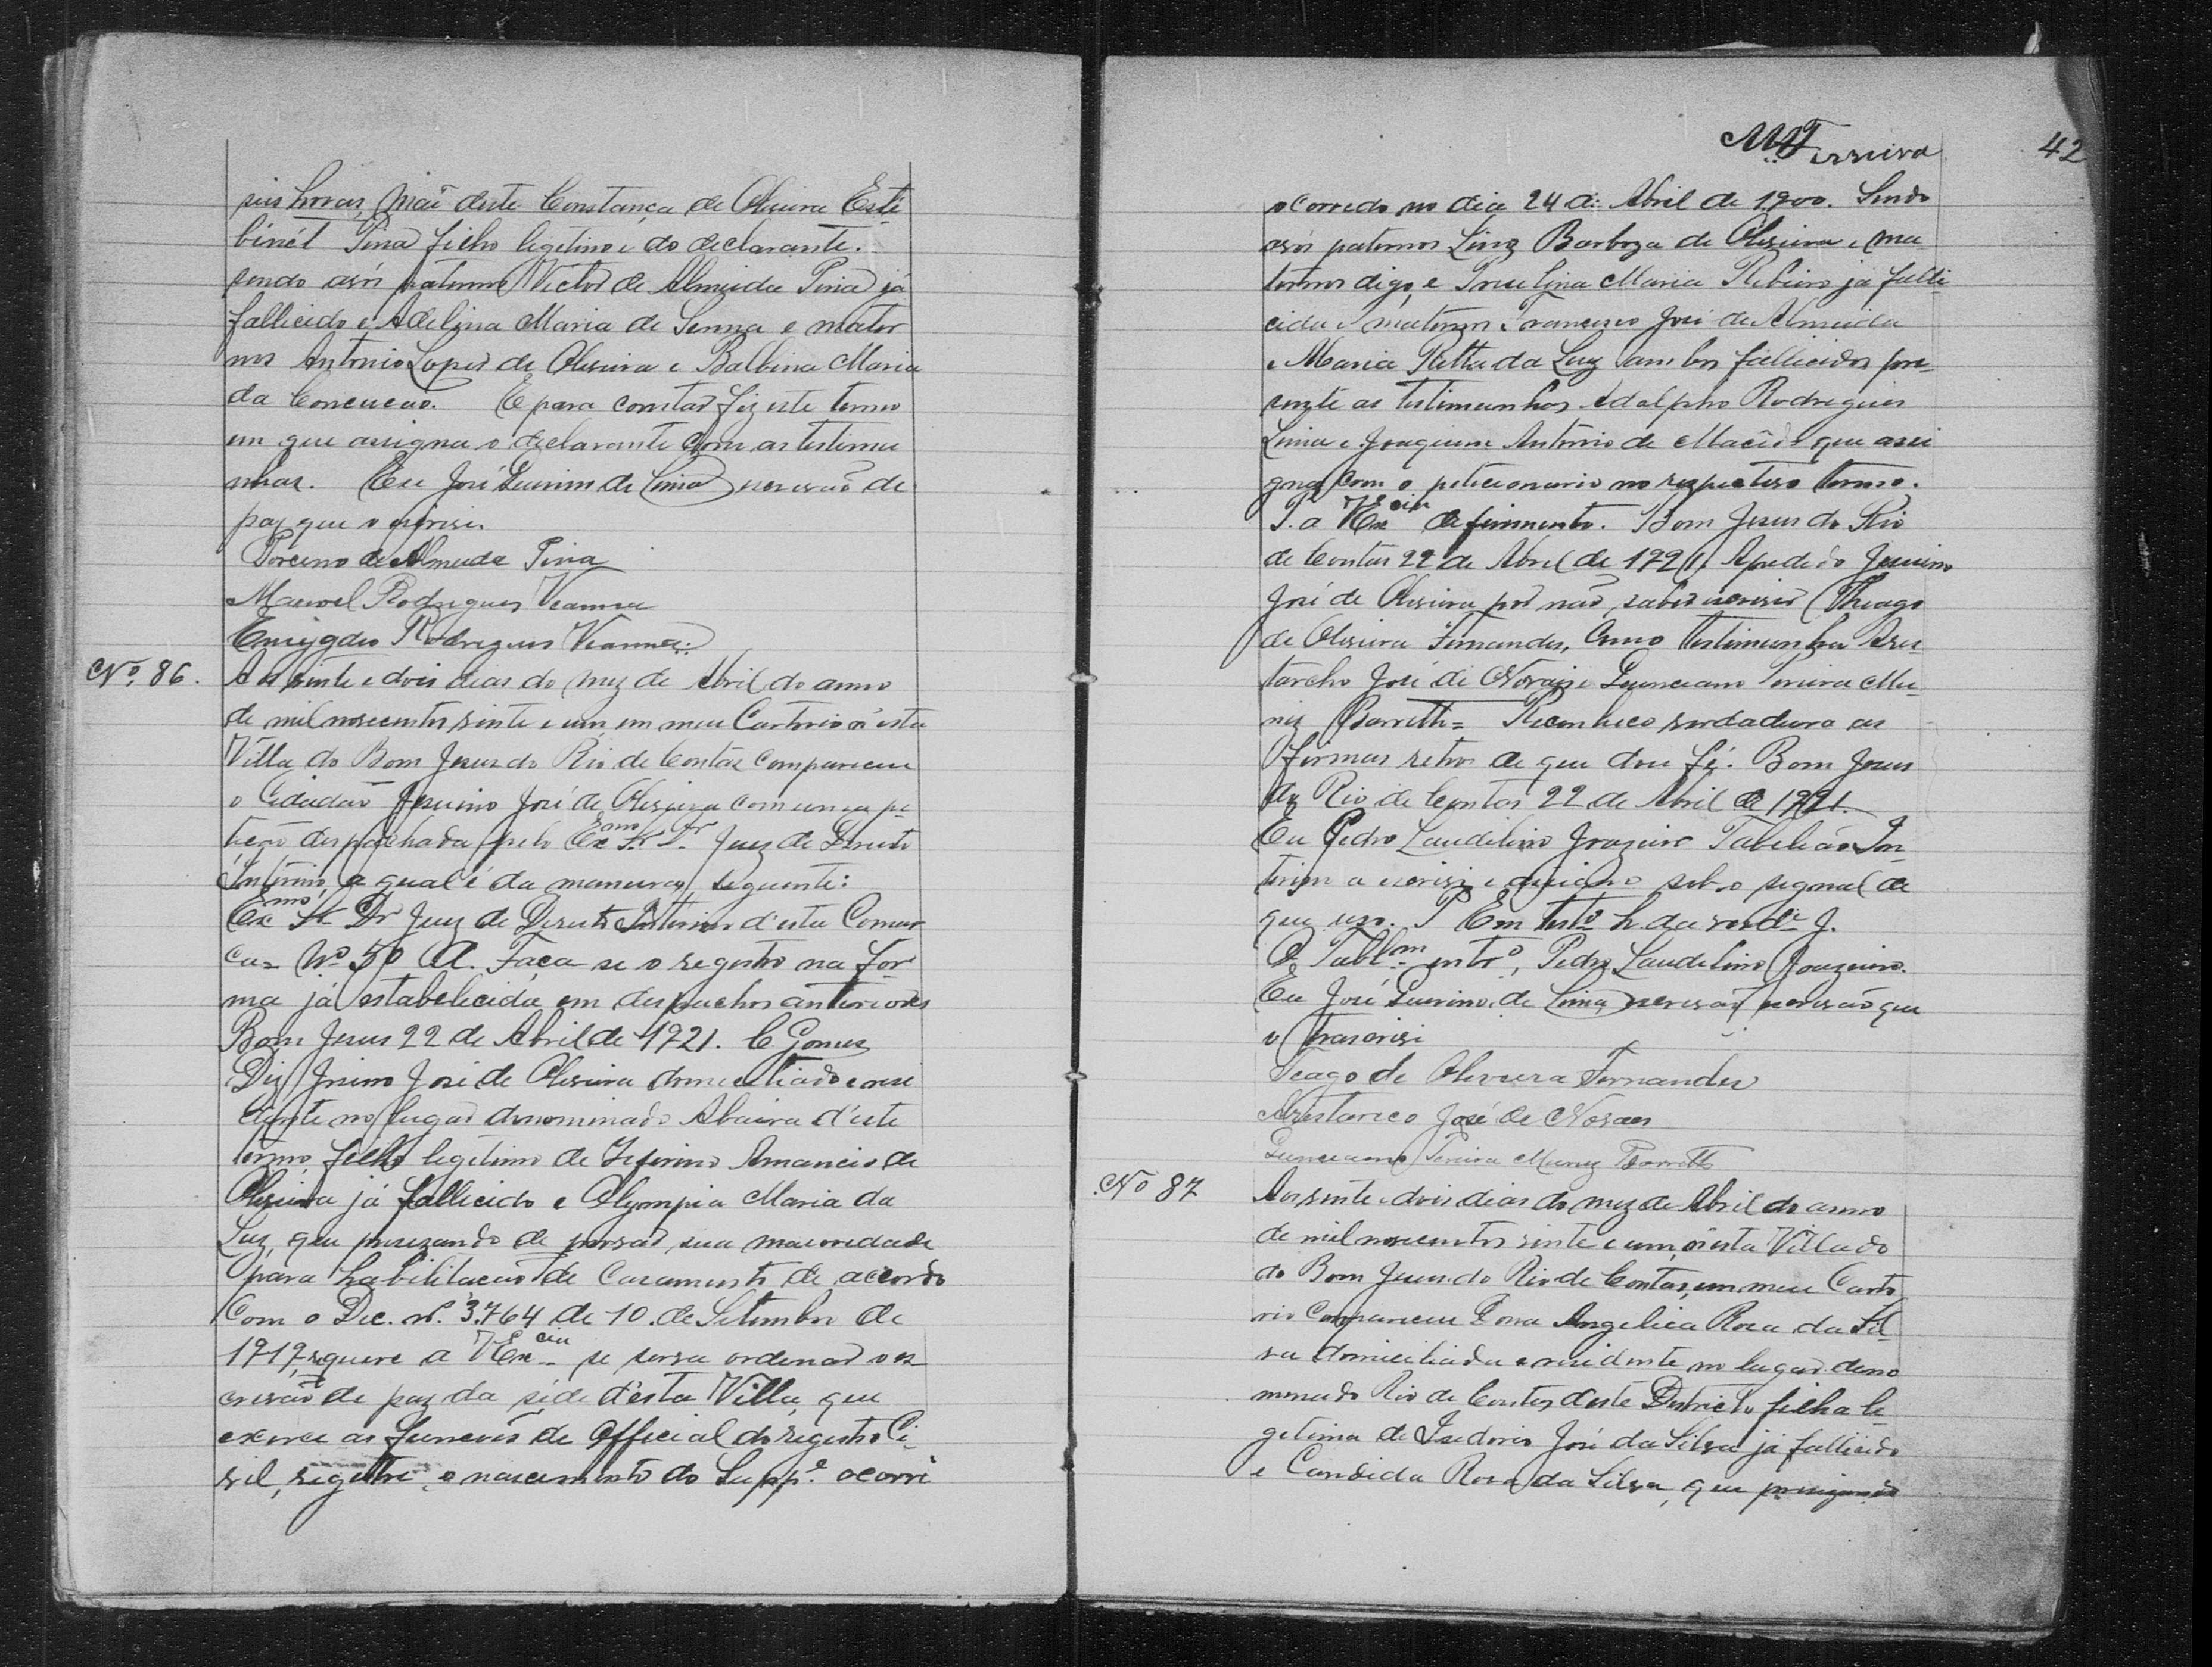 seis horas, mãi deste Constança de Oliveira Este
binét Pina filho legitimo e do declarante.
sendo avós paternos Victor de Almeida Pina já
fallicido e Adelina Maria de Senna e mater
nos Antonio Lopes de Oliveira e Balbina Maria
da Conceicão. E para constar fiz este termo
em que assigna o declarante com as testimu
nhas. Eu José Querino de Lima escrivão de
paz que o escrivi.
Porcino de Almeida Pina
Manoel Rodrigues Vianna
Emygdio Rodrigues Vianna
Nº 86.
Aos vinte e dois dias do mez de Abril do anno
de mil novecentos vinte e um, em meu Cartorio n'esta
Villa do Bom Jesus do Rio de Contas compareceu
o Cidadão Jesuino José de Oliveira com uma pe-
tição despachada pelo Exmo Sr Dr Juiz de Direito
Interino, a qual é da maneira seguente:
Exmo Sr Dr Juiz de Direito Interino d'esta Comar
ca= Nº 50 A. Faça se o registro na for
ma já estabelicida em despachos anteriores
Bom Jesus 22 de Abril de 1921. C. Gomes
Diz José de Oliveira domiciliado e resi
dente no lugar denominado Abaira d'este
termo, filho legitimo de Zeferino Amancio de
Oliveira já fallicido e Olympia Maria da
Luz, que precizando de provar sua maioridade
para habilitacão de Casamento de accordo
Com o Dec. nº 3.764 de 10 de Setembro de
1919, requere a VExcia se sirva ordenar o es
crivão de paz da séde d'esta Villa, que
exerce as funcões de Official do registro Ci-
vil, registre o nascimento do Suppe ocorri
M Ferreira
42
ocorrido no dia 24 de Abril de 1900. Sendo
avós paternos Barboza de Oliveira e ma
ternos digo, e Maria Ribeiro já falli-
cida e maternos Francisco José de Almeida
e Maria Ritta da Luz ambos fallicidos pre-
sente as testimunhas Adolpho Rodrigues
Lima e Joaquim Antonio de Macêdo que assi
gna com o peticionario no respectivo termo.
P. a VExcia defirimento. Bom Jesus do Rio
de Contas 22 de Abril de 1921. Apedido Jesuino
José de Oliveira por não saber escriver Thiago
de Oliveira Fernandes, Como testimunha Aris
tarcho José de Novais e Pereira Mu-
niz Barretto= Reconheco verdadeira as
firmas retro de que dou fé. Bom Jesus
do Rio de Contas 22 de Abril de 1921.
Eu Pedro Laudelino Joazeiro Tabelião In-
terino a escrivi e assigno sob o signal de
que uso. Em testo da verde J.
O Tablm intro, Pedro Laudelino Joazeiro.
Eu José Querino de Lima, escrivão escrivão que
o trascrivi
Teago de Oliveira Fernandes
Aristarco José de Novaes
Pereira Muniz Barretto
Nº 87
Aos vinte e dois dias do mez de Abril do anno
de mil novecentos vinte e um, n'esta Villa do
do Bom Jesus do Rio de Contas, em meu Carto
rio compareceu Dona Angelica Rosa da Sil
va domiciliada e residente no lugar deno
minado Rio de Contas deste Districto filha le-
getima de Izedorio José da Silva já fallicido
e Candida Rosa da Silva, que precizando